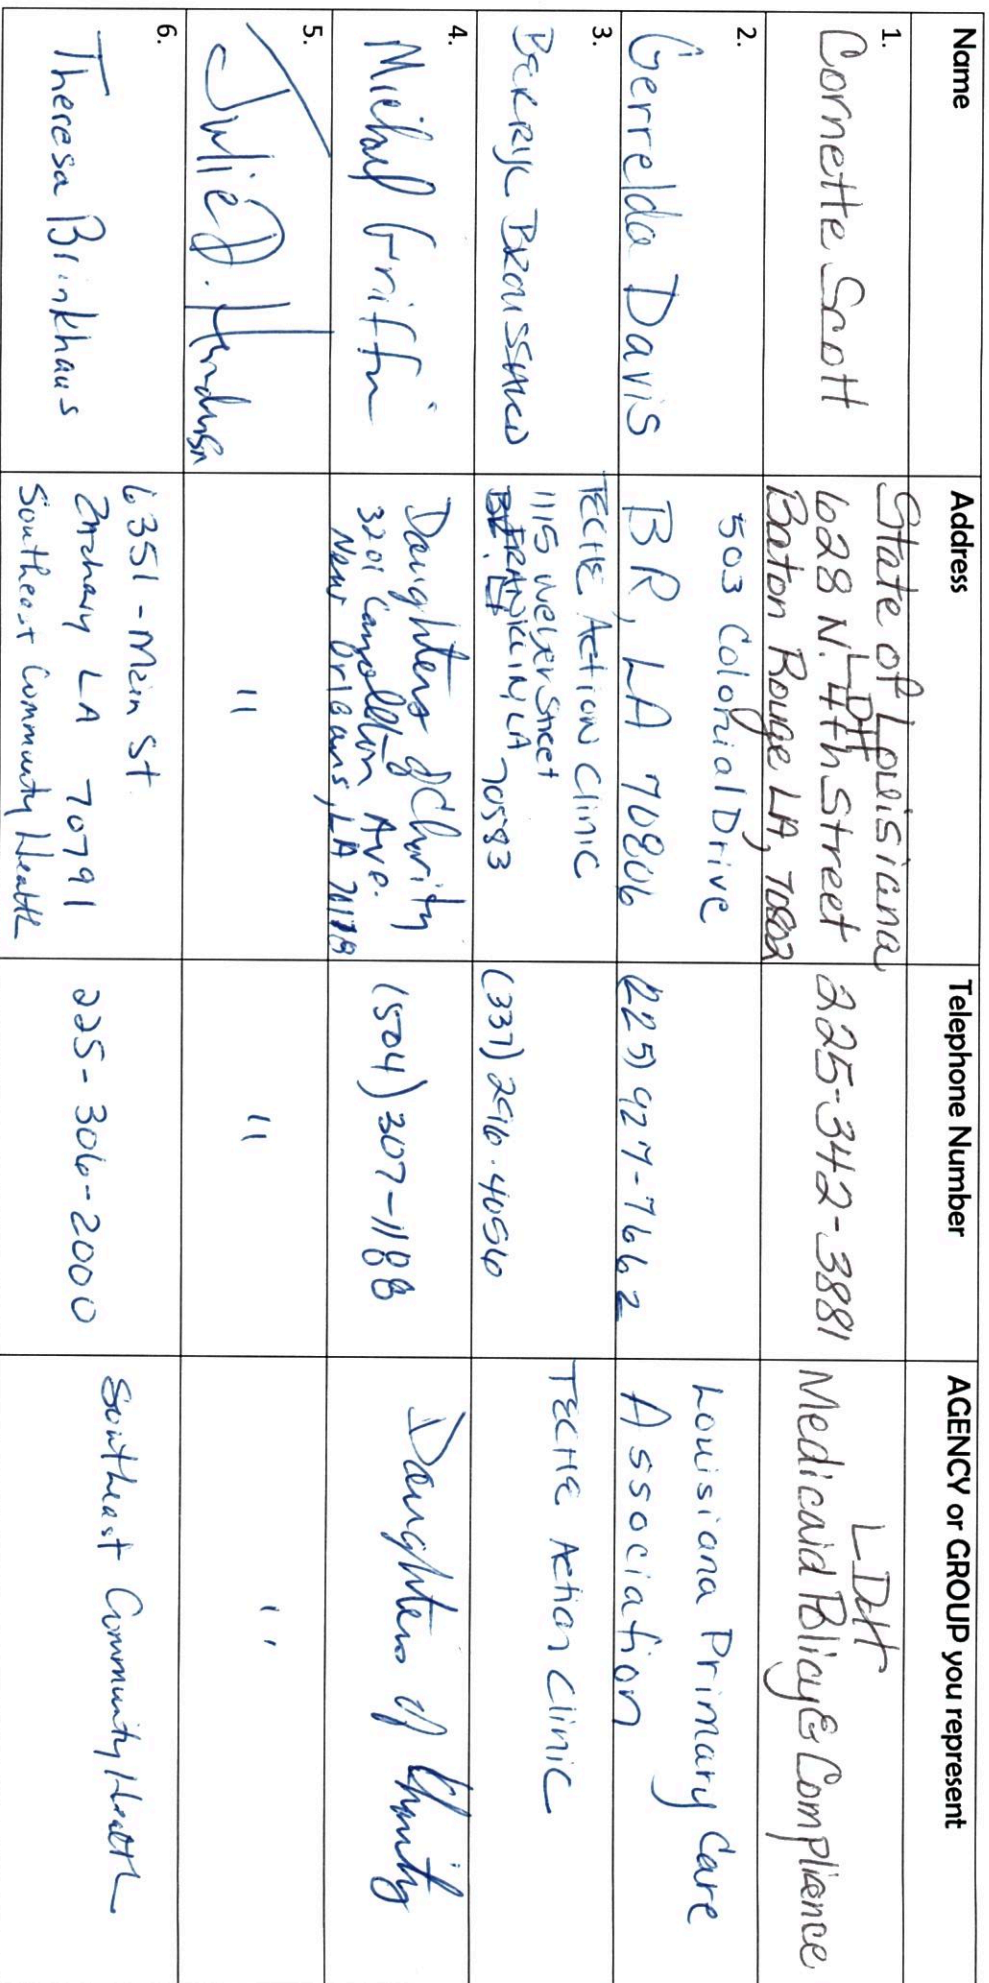 Name Address Telephone Number AGENCY or GROUP you represent
1.
Cornette Scott
State of Louisiana
LDH
628 N. 4th Street
Baton Rouge LA, 70802
225-342-3881
LDH
Medicaid Policy & Complience
2.
Gerrelda Davis
503 Colonial Drive
BR, LA 70806
(225) 927-7662
Louisiana Primary Care
Association
3.
TECHE Action Clinic
1115 Weber Street
FRANKLIN LA
(337)
TECHE Action Clinic
4.
Michael Griffin
Daughters of Charity
3201 Carrollton Ave.
New Orleans, LA
(504) 307-1188
Daughters of Charity
5.
Julie D.
"
"
"
6.
Theresa Brinkhaus
6351 - Main St.
Zachary LA 70791
Southeast Community Health
225-306-2000
Southeast Community Health